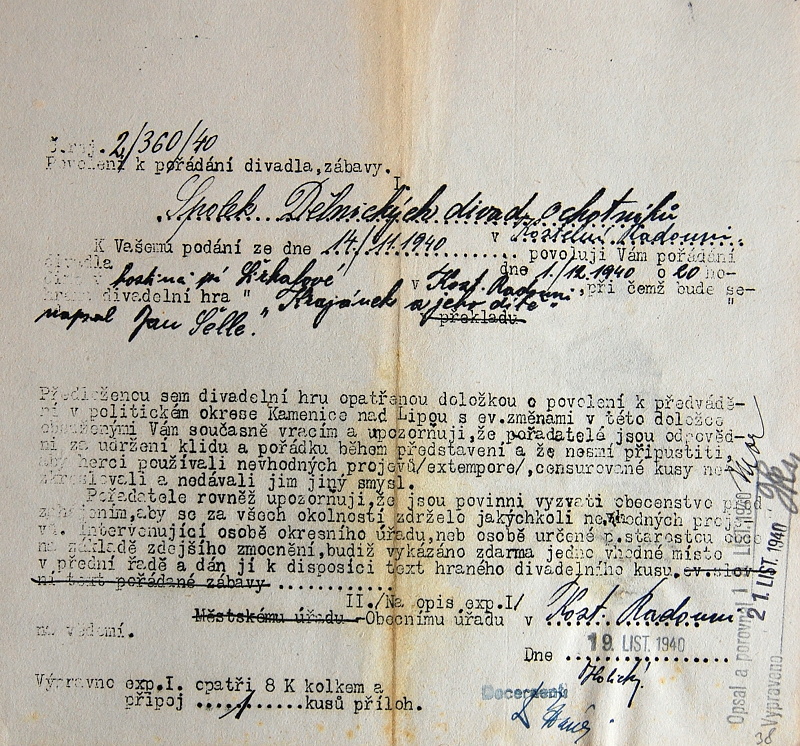 Č.j. 2/360/40
Povolení k pořádání divadla,zábavy.
I.
Spolek Dělnických divad. ochotníků
v Kostelní Radouni
K Vašemu podání ze dne 14/11.1940 povoluji Vám pořádání
divadla dne 1./12.1940 o 20 ho-
v hostinci pí v Kost. Radouni, při čemž bude se-
hrána divadelní hra " Krajánek a jeho dítě" "
napsal Jan Selle." překladu
Předloženou sem divadelní hru opatřenou doložkou o povolení k předvádě-
ní v politickém okrese Kamenice nad Lipou s ev.změnami v této doložce
obsaženými Vám současně vracím a upozorňuji,že pořadatelé jsou odpověd-
ni za udržení klidu a pořádku během představení a že nesmí připustiti,
aby herci používali nevhodných projevů/extempore/,censurované kusy ne-
zkreslovali a nedávali jim jiný smysl.
Pořadatele rovněž upozorňuji,že jsou povinni vyzvati obecenstvo před
zahájením,aby se za všech okolností zdrželo jakýchkoli nevhodných proje-
vů. Intervenující osobě okresního úřadu,neb osobě určené p.starostou obce
na základě zdejšího zmocnění,budiž vykázáno zdarma jedno vhodné místo
v přední řadě a dán jí k disposici text hraného divadelního kusu.ev.slov-
ní text pořádané zábavy .............
II./Na opis exp.I/
Městskému úřadu - Obecnímu úřadu v Kost. Radouni
na vědomí.
19. LIST. 1940
Dne ..................
Holický.
Výpravno exp.I. opatři 8 K kolkem a
připoj ....1.... kusů příloh.
Opsal a porovnal LIST. 1940
Vypraveno 21. LIST. 1940
38